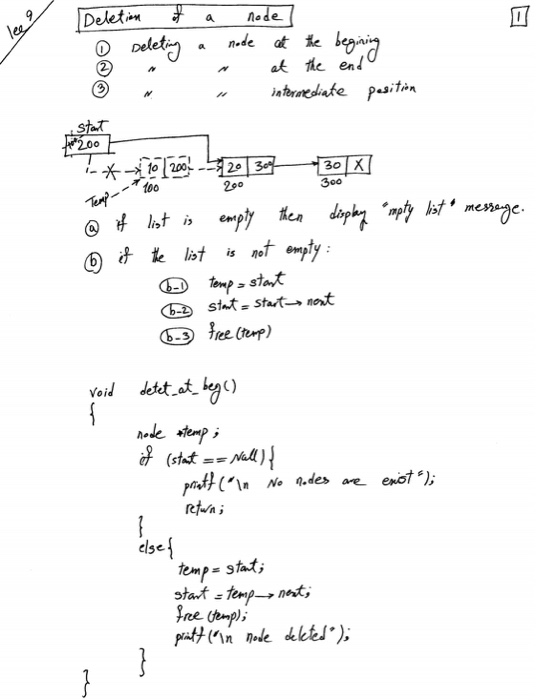 lec 9
Deletion of a node
1
① Deleting a node at the begining
② " " at the end
③ " " intermediate position
start
200
10 200
20 300
30 X
Temp
100
200
300
ⓐ if list is empty then display "mpty list" message.
ⓑ if the list is not empty:
b-1 temp = start
b-2 start = start → next
b-3 free (temp)
void delet_at_beg()
{
node *temp;
if (start == Null) {
printf ("\n No nodes are exist");
return;
}
else {
temp = start;
start = temp → next;
free (temp);
printf ("\n node deleted");
}
}